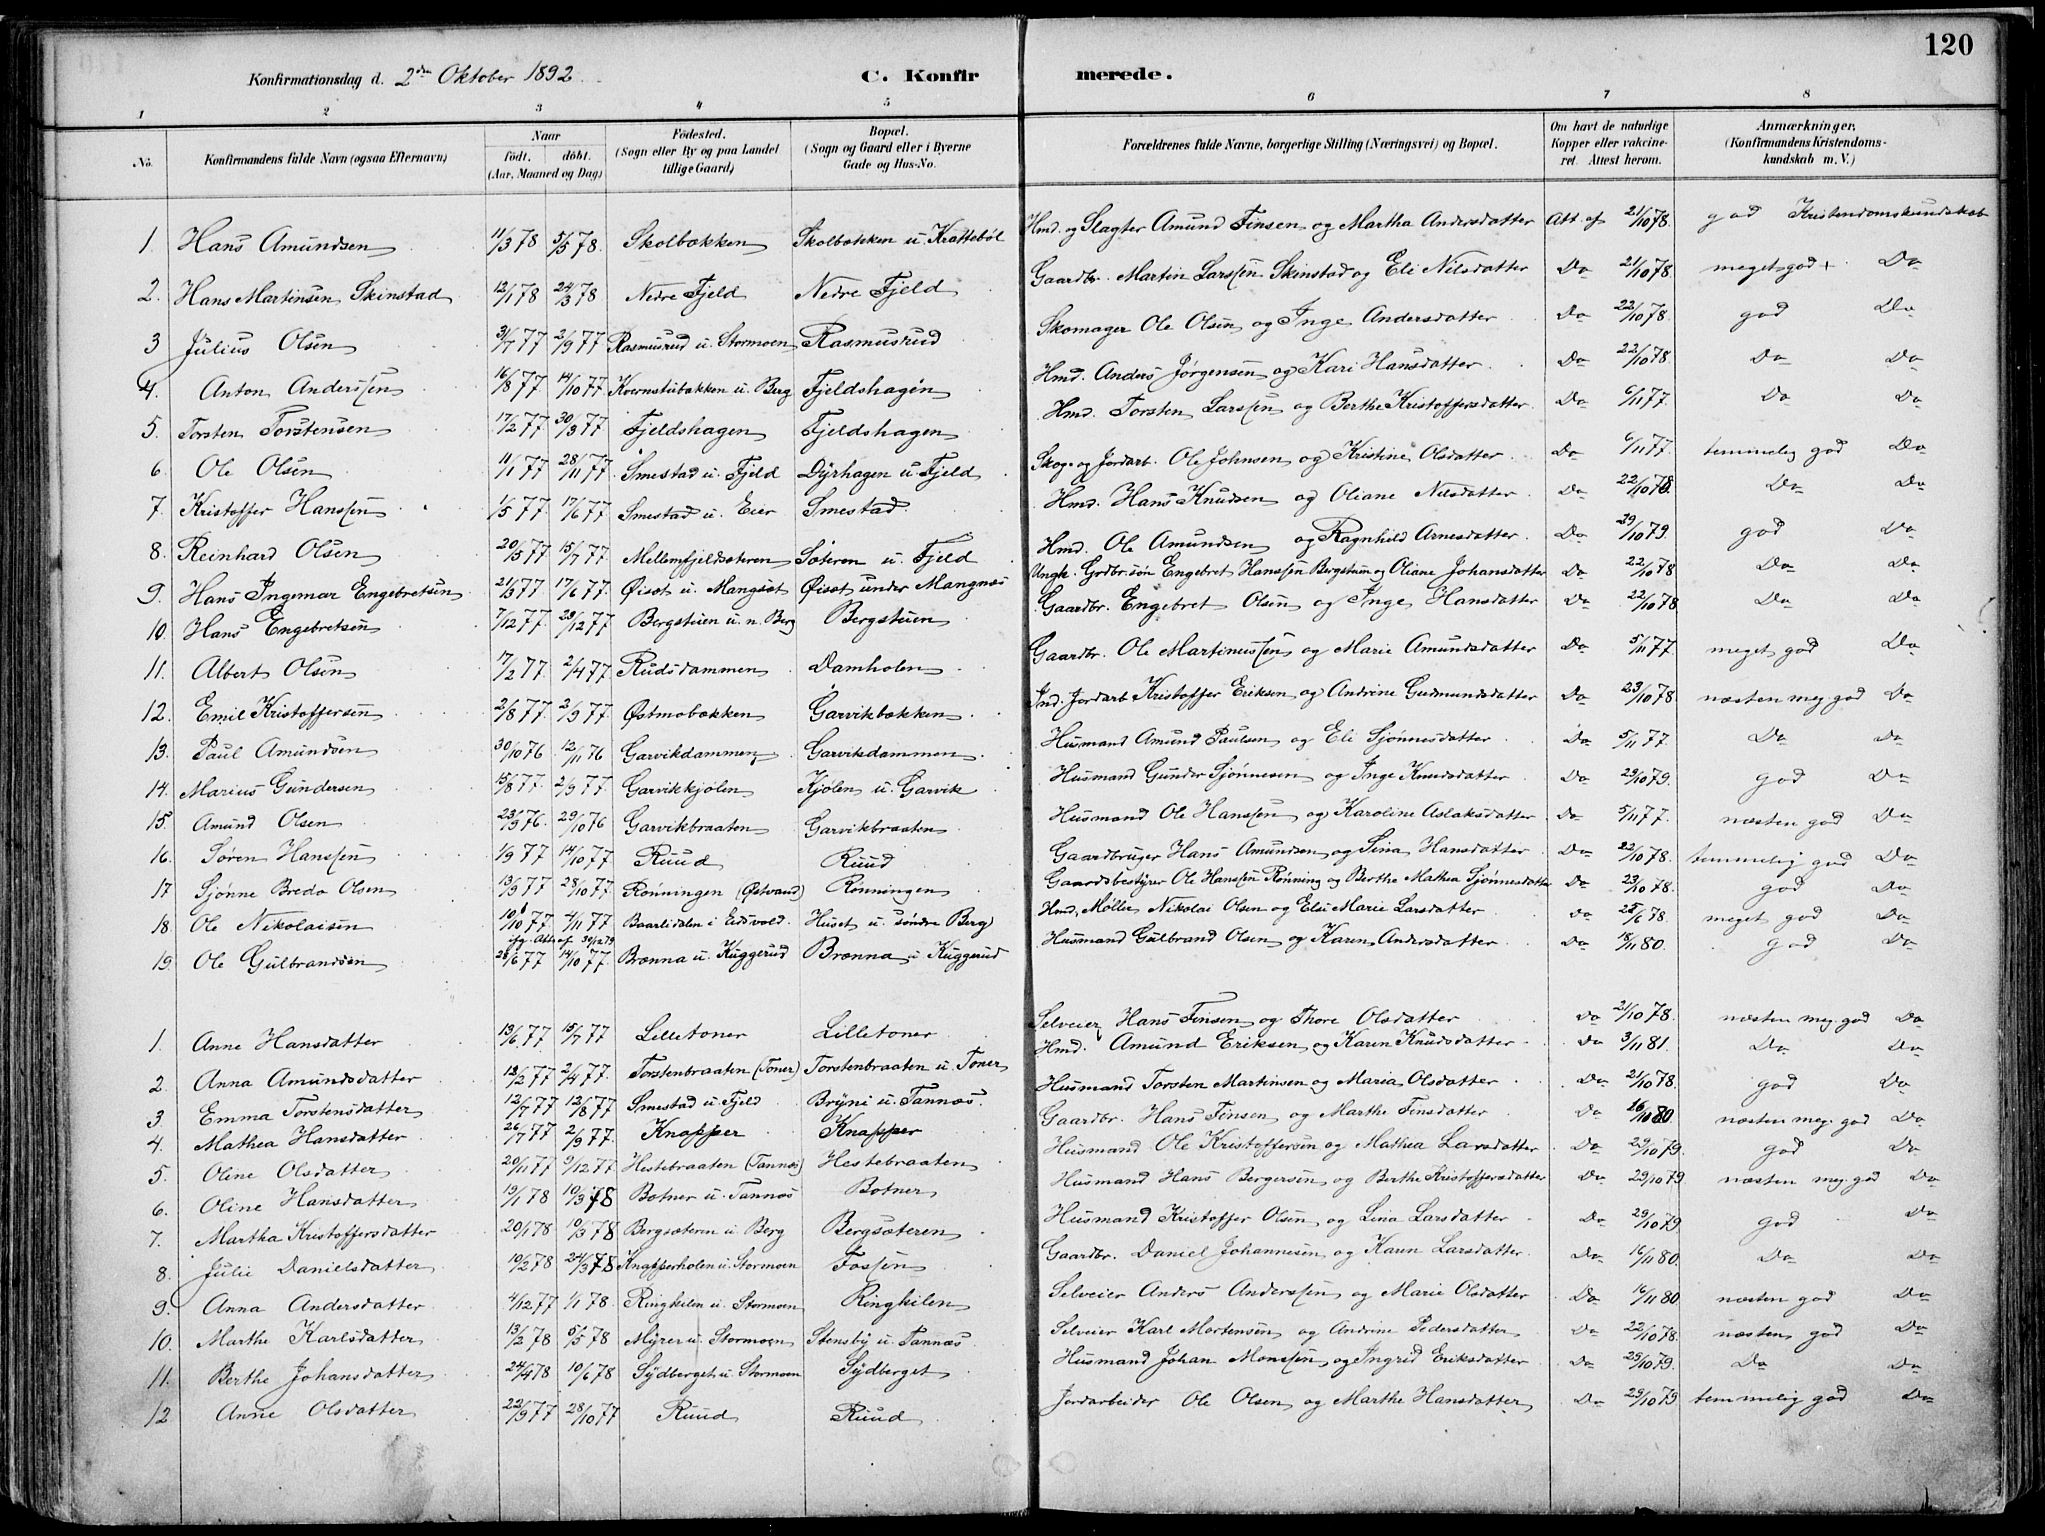 120
Konfirmationsdag d. 2den Oktober 1892. C. Konfirmerede.
1 2 3 4 5 6 7 8
No. Konfirmandens fulde Navn (ogsaa Efternavn) Naar født. døbt. (Aar, Maaned og Dag) Fødested. (Sogn eller By og paa Landet tillige Gaard) Bopæl. (Sogn og Gaard eller i Byerne Gade og Hus-No. Forældrenes fulde Navne, borgerlige Stilling (Næringsvei) og Bopæl. Om havt de naturlige Kopper eller vakcineret. Attest herom. Anmærkninger. (Konfirmandens Kristendomskundskab m. V.)
1. Hans Amundsen 11/3 78 5/5 78. Skolbækken Skolbækken u. Krattebøl Hmd. og Slagter Amund Finsen og Martha Andersdatter Att. af 21/10 78. god Kristendomskundskab
2. Hans Martinsen Skinstad 12/1 78 24/3 78 Nedre Fjeld Nedre Fjeld Gaardbr. Martin Larssen Skinstad og Eli Nilsdatter Do 21/10 78 meget god + Do
3 Julius Olsen 31/7 77 2/9 77 Rasmusrud u. Stormoen Rasmusrud Skomager Ole Olsen og Inge Andersdatter Do 22/10 78. god Do
4. Anton Anderssen 16/8 77 14/10 77 Kvernstubakken u. Berg Fjeldshagen Hmd. Anders Jørgensen og Kari Hansdatter Do 22/10 78 Do Do
5. Torsten Torstensen 17/2 77 30/3 77 Fjeldshagen Fjeldshagen Hmd. Torsten Larssen og Berthe Kristoffersdatter Do 6/11 77. Do Do
6. Ole Olsen 11/1 77 28/11 77 Smestad u. Fjeld Dyrhagen u. Fjeld Skog- og Jordarb. Ole Johnsen og Kristine Olsdatter Do 6/11 77. temmelig god Do
7. Kristoffer Hanssen 1/5 77 17/6 77 Smestad u. Eier Smestad Hmd. Hans Knudsen og Oliane Nilsdatter Do 22/10 78. Do Do
8. Reinhard Olsen 20/5 77 15/7 77 Mellemfjeldsæteren Sæteren u. Fjeld Hmd. Ole Amundsen og Ragnhild Arnesdatter Do 29/10 79. god Do
9. Hans Ingemar Engebretsen 21/3 77 17/6 77. Øiset u. Mangset Øiset under Mangnæs Ungk. Grdbr.søn Engebret Hanssen Bergstuen og Oliane Johansdatter Do 22/10 78 Do Do
10. Hans Engebretsen 7/12 77 29/12 77 Bergstuen u. n. Berg Bergstuen Gaardbr. Engebret Olsen og Inge Hansdatter Do 22/10 78 Do Do
11. Albert Olsen 17/2 77. 2/4 77 Rudsdammen Damholen Gaardbr. Ole Martinussen og Marie Amundsdatter Do 5/11 77. meget god Do
12. Emil Kristoffersen 2/8 77. 2/9 77 Østmobækken Garvikbækken Ind. Jordarb. Kristoffer Eriksen og Andrine Gudmundsdatter Do 23/10 78 næsten meg. god Do
13. Paul Amundsen 30/10 76 12/11 76 Garvikdammen Garvikdammen Husmand Amund Paulsen og Eli Sjønnesdatter Do 5/11 77. Do Do
14. Marius Gundersen 15/8 77. 2/9 77. Garvikkjølen Kjølen u. Garvik Husmand Gunder Sjønnesen og Inge Knudsdatter Do 29/10 79. god Do
15. Amund Olsen 23/9 76. 29/10 76 Garvikbraaten Garvikbraaten Husmand Ole Hanssen og Karoline Aslaksdatter Do 5/11 77. næsten god Do
16. Søren Hanssen 1/9 77 14/10 77 Ruud Ruud Gaardbruger Hans Amundsen og Lina Hansdatter Do 22/10 78. temmelig god Do
17 Sjønne Bredo Olsen 13/9 77 28/10 77 Rønningen (Østvand) Rønningen Gaardsbestyrer Ole Hanssen Rønning og Berthe Mathea Sjønnesdatter Do 23/10 78. god Do
18. Ole Nikolaisen 10/10 77 4/11 77 Baarlidalen i Eidsvold. Huset u. søndre Berg Hmd, Møller Nikolai Olsen og Elie Marie Larsdatter do 28/6 78. meget god Do
ifg. Att. af 30/12 79
19. Ole Gulbrandsen 28/6 77 14/10 77. Brænna u. Kuggerud Brænna u. Kuggerud Husmand Gulbrand Olsen og Karen Andersdatter Do 18/11 80. god Do
1. Anne Hansdatter 13/6 77. 15/7 77 Lilletoner Lilletoner Selveier Hans Finsen og Thore Olsdatter Do 21/10 78. næsten meg. god Do
2. Anna Amundsdatter 12/2 77 2/4 77. Torstenbraaten (Toner) Torstenbraaten u. Toner Hmd. Amund Eriksen og Karen Knudsdatter Do 3/11 81. Do Do
3 Emma Torstensdatter 12/7 77 12/8 77 Smestad u. Fjeld Bryni u. Tannæs. Husmand Torsten Martinsen og Maria Olsdatter Do 21/10 78. god Do
4. Mathea Hansdatter 26/7 77 2/9 77. Knapper Knapper Gaardbr. Hans Finsen og Marthe Finsdatter Do 16/11 80. næsten meg. god Do
5. Oline Olsdatter 20/11 77 9/12 77 Hestebraaten (Tannæs) Hestebraaten Husmand Ole Kristoffersen og Mathea Larsdatter Do 29/10 79. god Do
6. Oline Hansdatter 19/1 78 10/3 78 Botner u. Tannæs Botner Husmand Hans Bergersen og Berthe Kristoffersdatter Do 29/10 79 næsten meg. god Do
7. Martha Kristoffersdatter 20/1 78 10/3 78 Bergsæteren u. Berg Bergsæteren Husmand Kristoffer Olsen og Lina Larsdatter Do 29/10 79 god Do
8. Julie Danielsdatter 10/2 78 24/3 78 Knapperholen u. Stormoen Fossen Gaardbr. Daniel Johannesen og Karen Larsdatter Do 16/11 80. Do Do
9. Anna Andersdatter 4/12 77 1/1 78. Ringkilen u. Stormoen Ringkilen Selveier Anders Anderssen og Marie Olsdatter Do 16/11 80 næsten god Do
10. Marthe Karlsdatter 13/2 78 5/5 78 Myrer u. Stormoen Stensby u. Tannæs. Selveier Karl Mortensen og Andrine Pedersdatter Do 22/10 78. næsten god Do
11. Berthe Johansdatter 24/4 78 10/6 78 Sydberget u. Stormoen Sydberget Husmand Johan Monssen og Ingrid Eriksdatter Do 29/10 79. Do Do
12 Anne Olsdatter 22/9 77 28/10 77 Ruud Ruud Jordarbeider Ole Olsen og Marthe Hansdatter Do 29/10 79 temmelig god Do